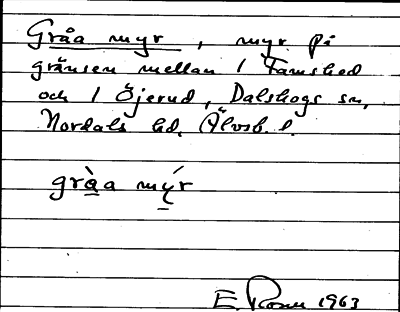 Gråa myr, myr på
gränsen mellan 1 Tamshed
och 1 Öjerud, Dalskogs sn,
Nordals hd. Älvsb. l.
gràa mýr
E. 1963